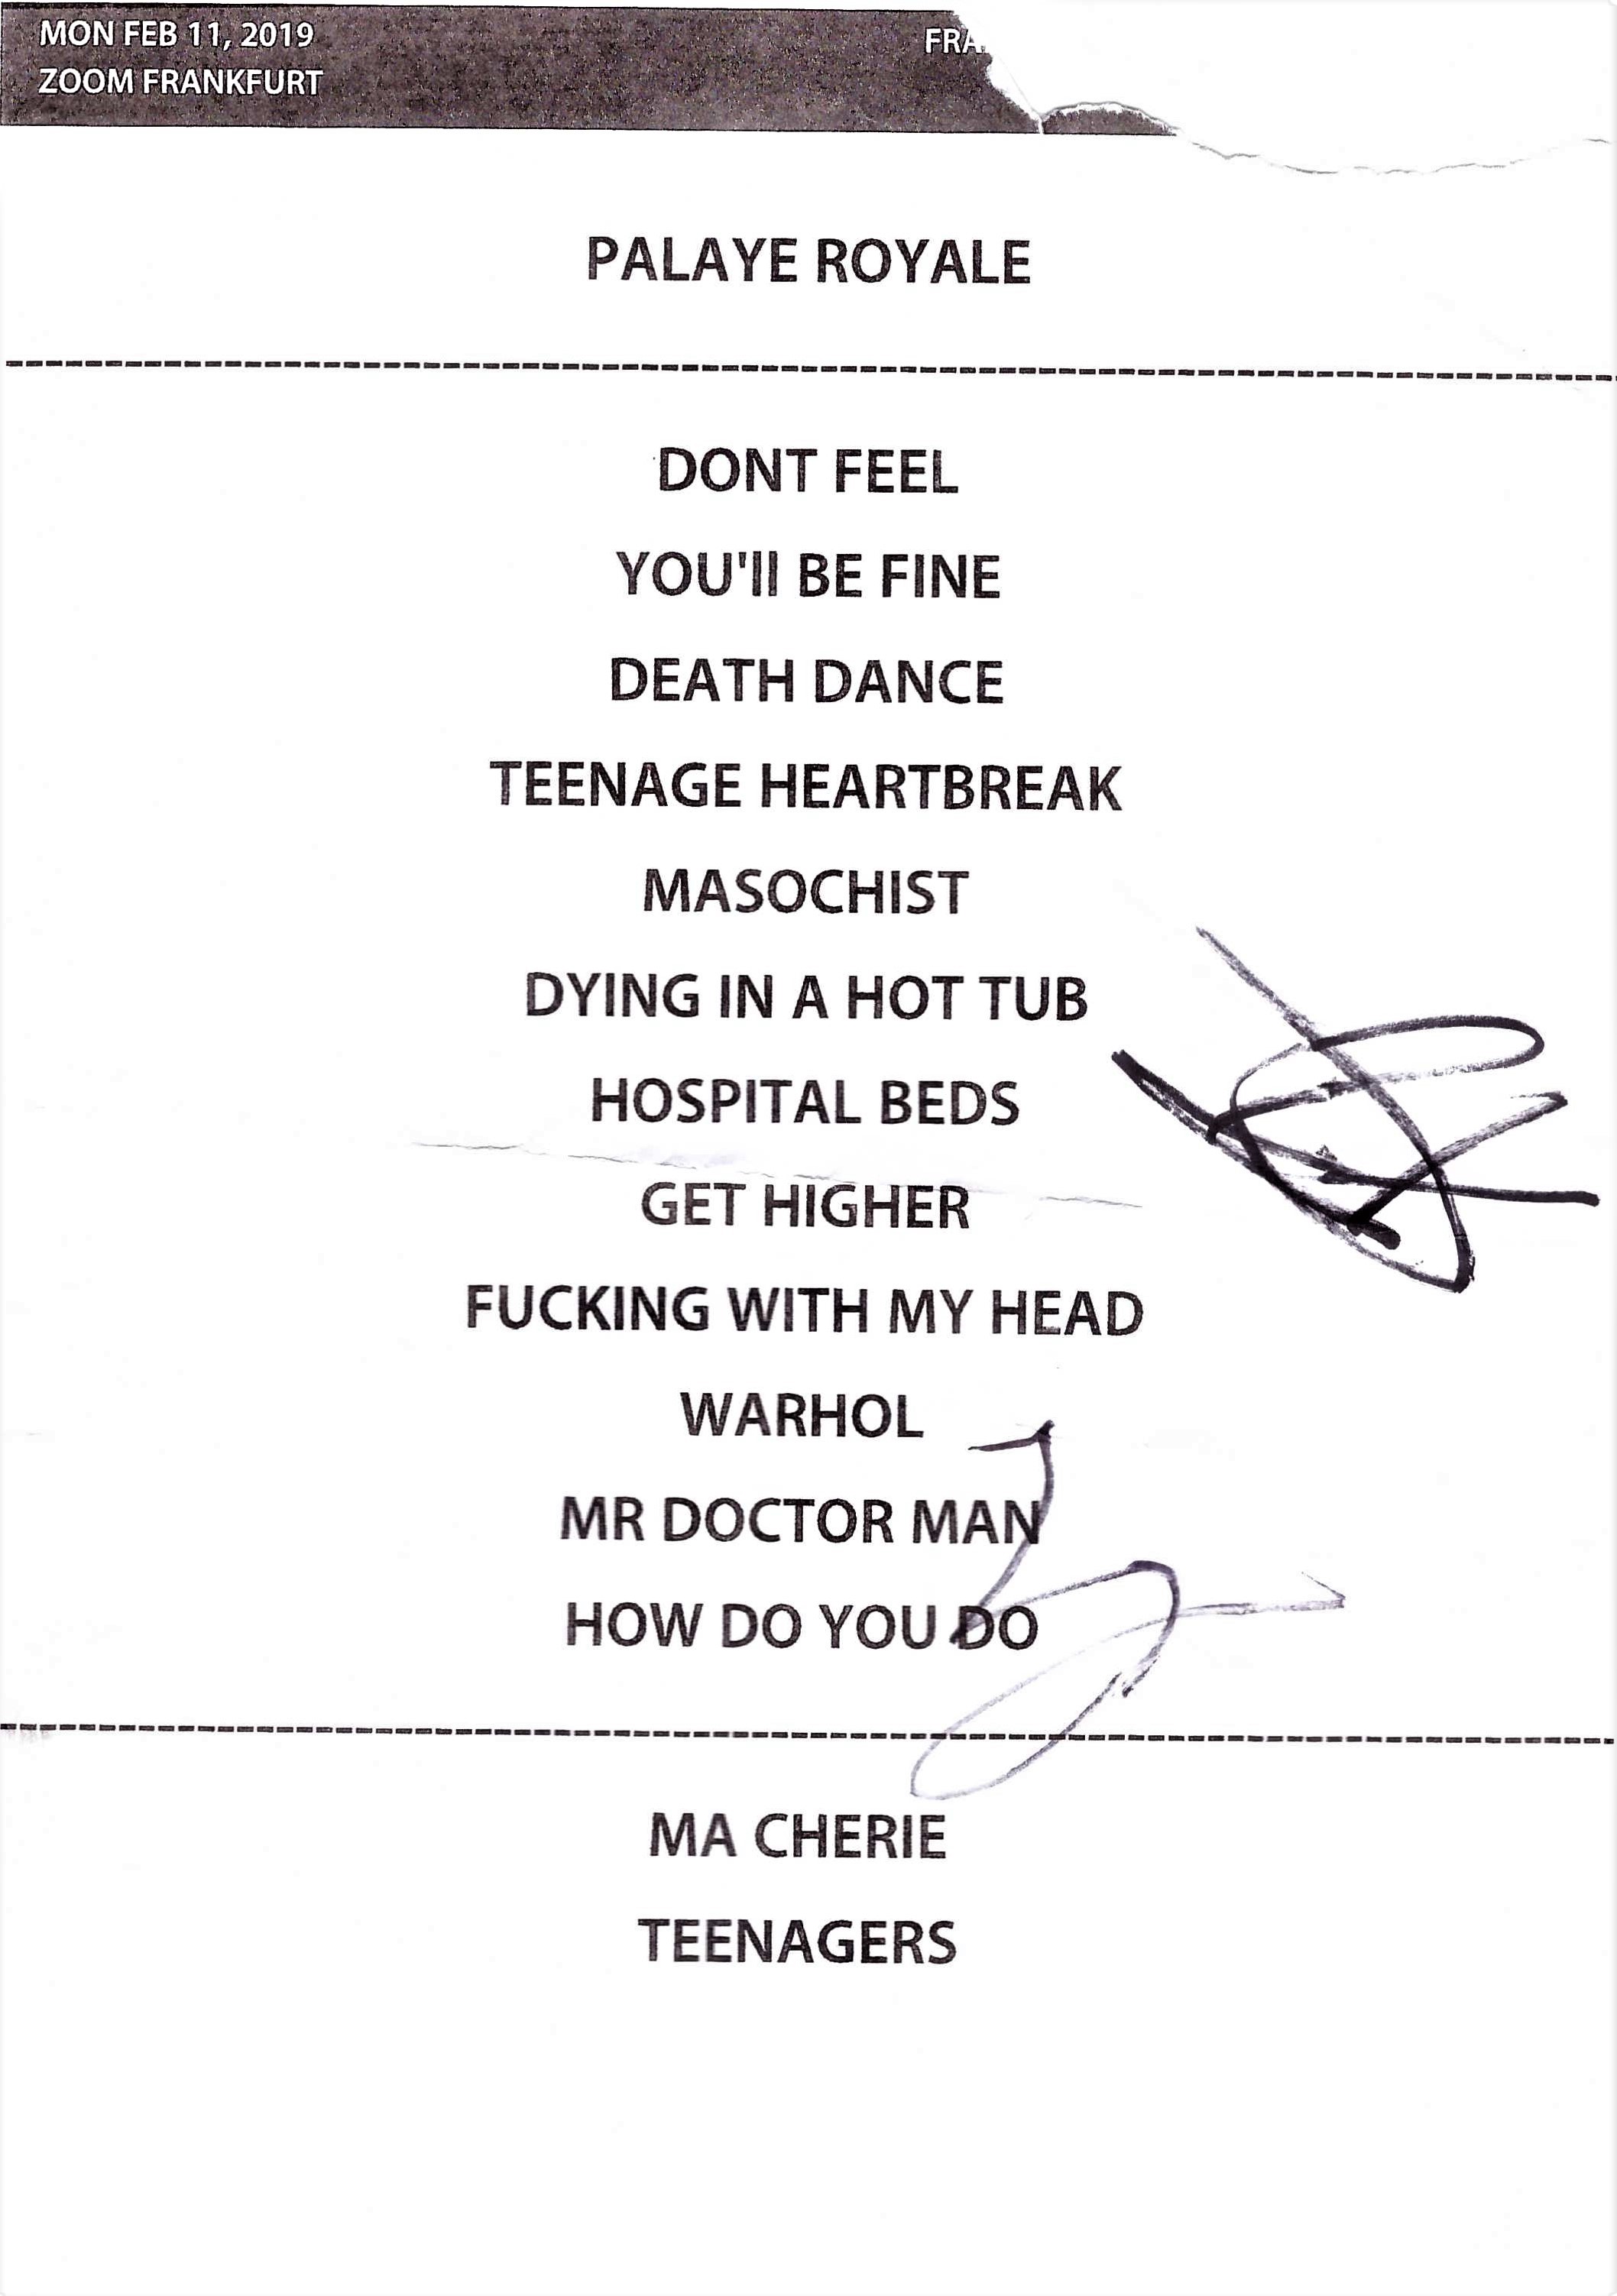 MON FEB 11, 2019
ZOOM FRANKFURT
PALAYE ROYALE
DONT FEEL
YOU'll BE FINE
DEATH DANCE
TEENAGE HEARTBREAK
MASOCHIST
DYING IN A HOT TUB
HOSPITAL BEDS
GET HIGHER
FUCKING WITH MY HEAD
WARHOL
MR DOCTOR MAN
HOW DO YOU DO
MA CHERIE
TEENAGERS